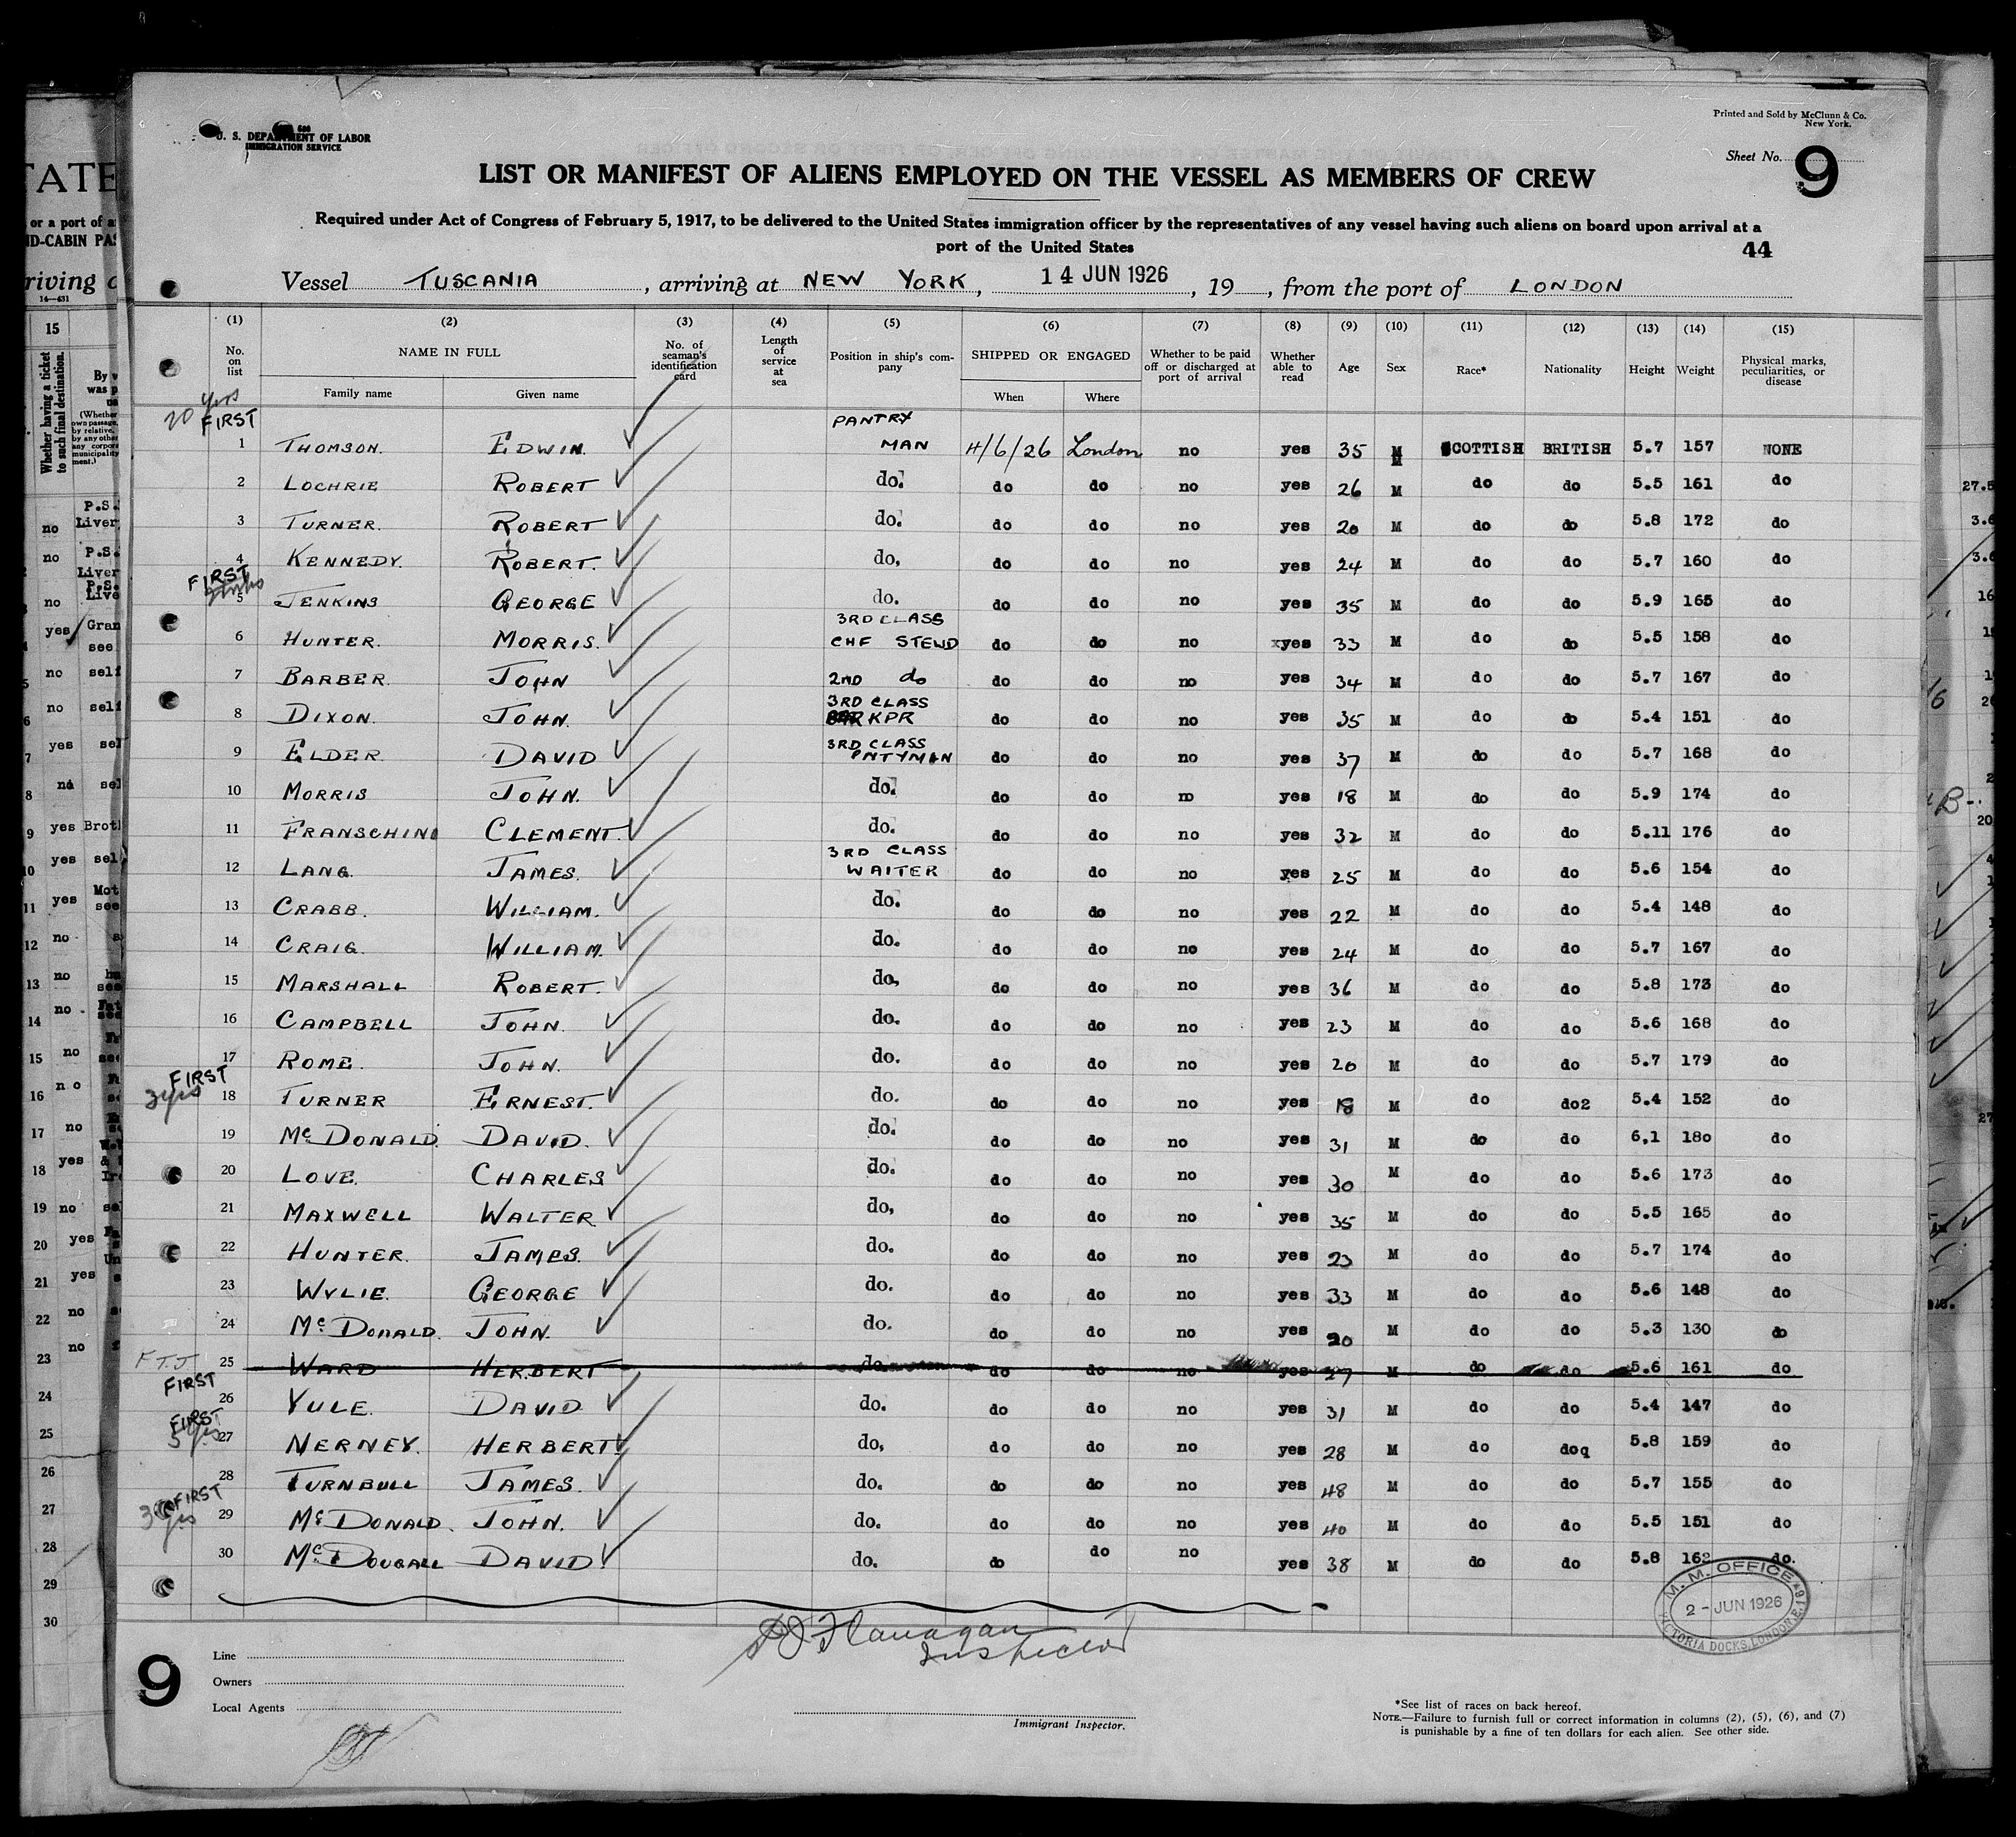 U. S. DEPARTMENT OF LABOR
IMMIGRATION SERVICE
Printed and Sold by McClunn & Co.
New York.
Sheet No. 9
LIST OR MANIFEST OF ALIENS EMPLOYED ON THE VESSEL AS MEMBERS OF CREW
Required under Act of Congress of February 5, 1917, to be delivered to the United States immigration officer by the representatives of any vessel having such aliens on board upon arrival at a
port of the United States
44
Vessel TUSCANIA, arriving at NEW YORK, 14 JUN 1926, 19, from the port of LONDON
(1) (2) (3) (4) (5) (6) (7) (8) (9) (10) (11) (12) (13) (14) (15)
No. on list NAME IN FULL Family name Given name No. of seaman's identification card Length of service at sea Position in ship's company SHIPPED OR ENGAGED When Where Whether to be paid off or discharged at port of arrival Whether able to read Age Sex Race* Nationality Height Weight Physical marks, peculiarities, or disease
20 yrs
FIRST PANTRY
1 THOMSON. EDWIN. MAN 4/6/26 London no yes 35 M SCOTTISH BRITISH 5.7 157 NONE
2 LOCHRIE ROBERT do. do do no yes 26 M do do 5.5 161 do
3 TURNER. ROBERT do. do do no yes 20 M do do 5.8 172 do
4 KENNEDY. ROBERT. do, do do no yes 24 M do do 5.7 160 do
FIRST
5 JENKINS GEORGE do. do do no yes 35 M do do 5.9 165 do
3RD CLASS
6 HUNTER. MORRIS. CHF STEWD do do no xyes 33 M do do 5.5 158 do
7 BARBER. JOHN 2ND do do do no yes 34 M do do 5.7 167 do
3RD CLASS
8 DIXON. JOHN. BAR KPR do do no yes 35 M do do 5.4 151 do
3RD CLASS
9 ELDER. DAVID PNTYMAN do do no yes 37 M do do 5.7 168 do
10 MORRIS JOHN. do. do do no yes 18 M do do 5.9 174 do
11 FRANSCHINI CLEMENT. do. do do no yes 32 M do do 5.11 176 do
3RD CLASS
12 LANG. JAMES. WAITER do do no yes 25 M do do 5.6 154 do
13 CRABB. WILLIAM. do. do do no yes 22 M do do 5.4 148 do
14 CRAIG. WILLIAM. do. do do no yes 24 M do do 5.7 167 do
15 MARSHALL ROBERT. do, do do no yes 36 M do do 5.8 173 do
16 CAMPBELL JOHN. do. do do no yes 23 M do do 5.6 168 do
17 ROME. JOHN. do. do do no yes 20 M do do 5.7 179 do
FIRST
3yrs
18 TURNER ERNEST. do. do do no yes 18 M do do2 5.4 152 do
19 McDONALD. DAVID. do. do do no yes 31 M do do 6,1 180 do
20 LOVE. CHARLES do. do do no yes 30 M do do 5.6 173 do
21 MAXWELL WALTER do, do do no yes 35 M do do 5.5 165 do
22 HUNTER. JAMES. do. do do no yes 23 M do do 5.7 174 do
23 WYLIE. GEORGE do. do do no yes 33 M do do 5.6 148 do
24 McDONALD. JOHN. do. do do no yes 20 M do do 5.3 130 do
F.T.J 25 WARD HERBERT do. do do no yes 27 M do do 5.6 161 do
FIRST
26 YULE. DAVID do. do do no yes 31 M do do 5.4 147 do
FIRST
5 yrs
27 NERNEY. HERBERT. do, do do no yes 28 M do doq 5.8 159 do
28 TURNBULL JAMES. do. do do no yes 48 M do do 5.7 155 do
FIRST
3 yrs
29 McDONALD. JOHN. do. do do no yes 40 M do do 5.5 151 do
30 McDOUGALL DAVID. do. do do no yes 38 M do do 5.8 162 do.
M. M. OFFICE
2 - JUN 1926
VICTORIA DOCKS, LONDON, E.
Flanagan
Inspector
9
Line
Owners
Local Agents
Immigrant Inspector.
*See list of races on back hereof.
NOTE.—Failure to furnish full or correct information in columns (2), (5), (6), and (7)
is punishable by a fine of ten dollars for each alien. See other side.